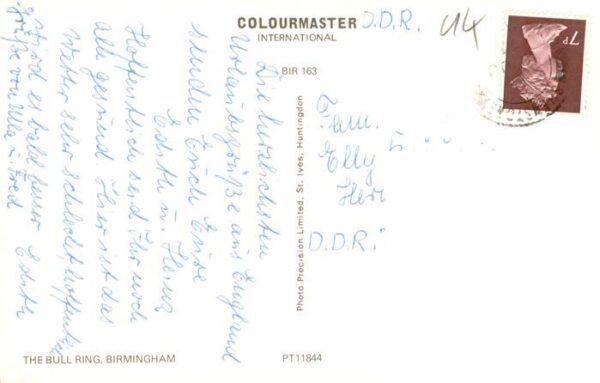 COLOURMASTER
INTERNATIONAL
D.D.R.
U4
7P
BIR 163
Die herzlichsten
Urlaubsgrüße aus England
senden Euch Eure
Edith u. Heinz
Hoffentlich seid Ihr noch
alle gesund. Hier ist das
Wetter sehr schlecht, hoffentlich
wird es bald besser. Edith
Grüße von Ulla u. Fred
Fam.
Elly
Her
D.D.R.
Photo Precision Limited, St. Ives, Huntingdon
THE BULL RING, BIRMINGHAM
PT11844